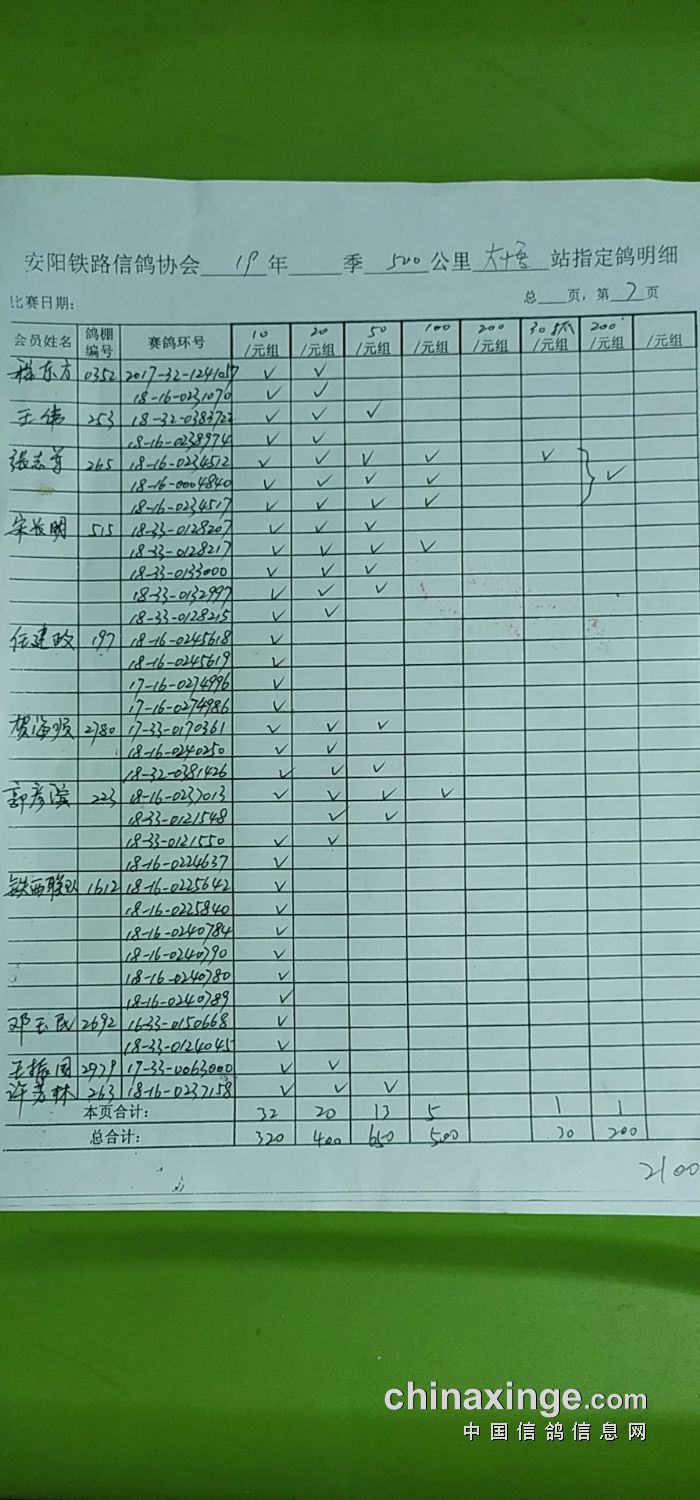 安阳铁路信鸽协会 19 年 季 500 公里 大悟 站指定鸽明细
比赛日期: 总 页, 第 7 页
会员姓名 鸽棚编号 赛鸽环号 10/元组 20/元组 50/元组 100/元组 200/元组 30 /元组 200/元组 /元组
程东方 0352 2017-32-1241057 ✓ ✓
18-16-0231070 ✓ ✓
王伟 253 18-32-0383722 ✓ ✓ ✓
18-16-0238974 ✓ ✓
张志莹 265 18-16-0234512 ✓ ✓ ✓ ✓ ✓
18-16-0004840 ✓ ✓ ✓ ✓ ✓
18-16-0234517 ✓ ✓ ✓ ✓
宋长明 515 18-33-0128207 ✓ ✓ ✓
18-33-0128217 ✓ ✓ ✓ ✓
18-33-0133000 ✓ ✓ ✓
18-33-0132997 ✓ ✓ ✓
18-33-0128215 ✓ ✓
任建政 197 18-16-0245618 ✓
18-16-0245619 ✓
17-16-0274996 ✓
17-16-0274986 ✓
贺海顺 2780 17-33-0170361 ✓ ✓ ✓
18-16-0240250 ✓ ✓
18-32-0381426 ✓ ✓ ✓
郭彦滨 223 18-16-0237013 ✓ ✓ ✓ ✓
18-33-0121548 ✓ ✓
18-33-0121550 ✓ ✓
18-16-0224637 ✓
铁西联队 1612 18-16-0225642 ✓
18-16-0225840 ✓
18-16-0240784 ✓
18-16-0240790 ✓
18-16-0240780 ✓
18-16-0240789 ✓
邓玉民 2692 16-33-0150668 ✓
18-33-0124045 ✓
王振国 2979 17-33-0063000 ✓ ✓
许芳林 263 18-16-0237158 ✓ ✓ ✓
本页合计: 32 20 13 5 1 1
总合计: 320 400 650 500 30 200
2100
chinaxinge.com
中国信鸽信息网